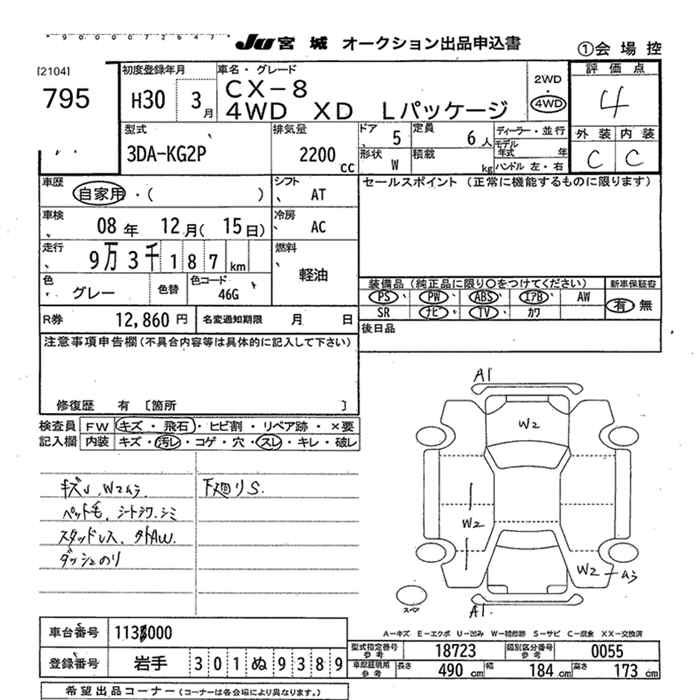 *90000726477*
JU宮城 オークション出品申込書
①会場控
[2104]
795
初度登録年月
H30 3月
車名・グレード
CX-8
4WD XD Lパッケージ
2WD
・
4WD
評価点
4
外装 内装
C C
型式
3DA-KG2P
排気量
2200 cc
ドア 5
定員 6人
形状 W
積載 kg
ディーラー・並行
モデル年式 年
ハンドル 左・右
車歴
自家用・( )
シフト AT
セールスポイント (正常に機能するものに限ります)
車検
08年 12月(15日)
冷房 AC
走行
9万3千187km
燃料
軽油
色
グレー
色替
色コード
46G
装備品(純正品に限り○をつけてください)
新車保証書
PS PW ABS エアB AW
有 無
SR ナビ TV カワ
R券 12,860円
名変通知期限 月 日
後日品
注意事項申告欄(不具合内容等は具体的に記入して下さい)
修復歴 有 [箇所 ]
検査員 FW キズ・飛石・ヒビ割・リペア跡・×要
記入欄 内装 キズ・汚レ・コゲ・穴・スレ・キレ・破レ
キズU、W2ムラ.
下廻りS.
ペット毛、シートシワ、シミ
スタッドレス、夕トAW.
ダッシュのり
A1
W2
W2
W2-ムラ
A1
スペア
A-キズ E-エクボ U-凹み W-補修跡 S-サビ C-腐食 XX-交換済
車台番号 113000
登録番号 岩手 301ぬ9389
型式指定番号 参考 18723
類別区分番号 参考 0055
車庫証明用 参考
長さ 490cm 幅 184cm 高さ 173cm
希望出品コーナー(コーナーは各会場により異なります。)